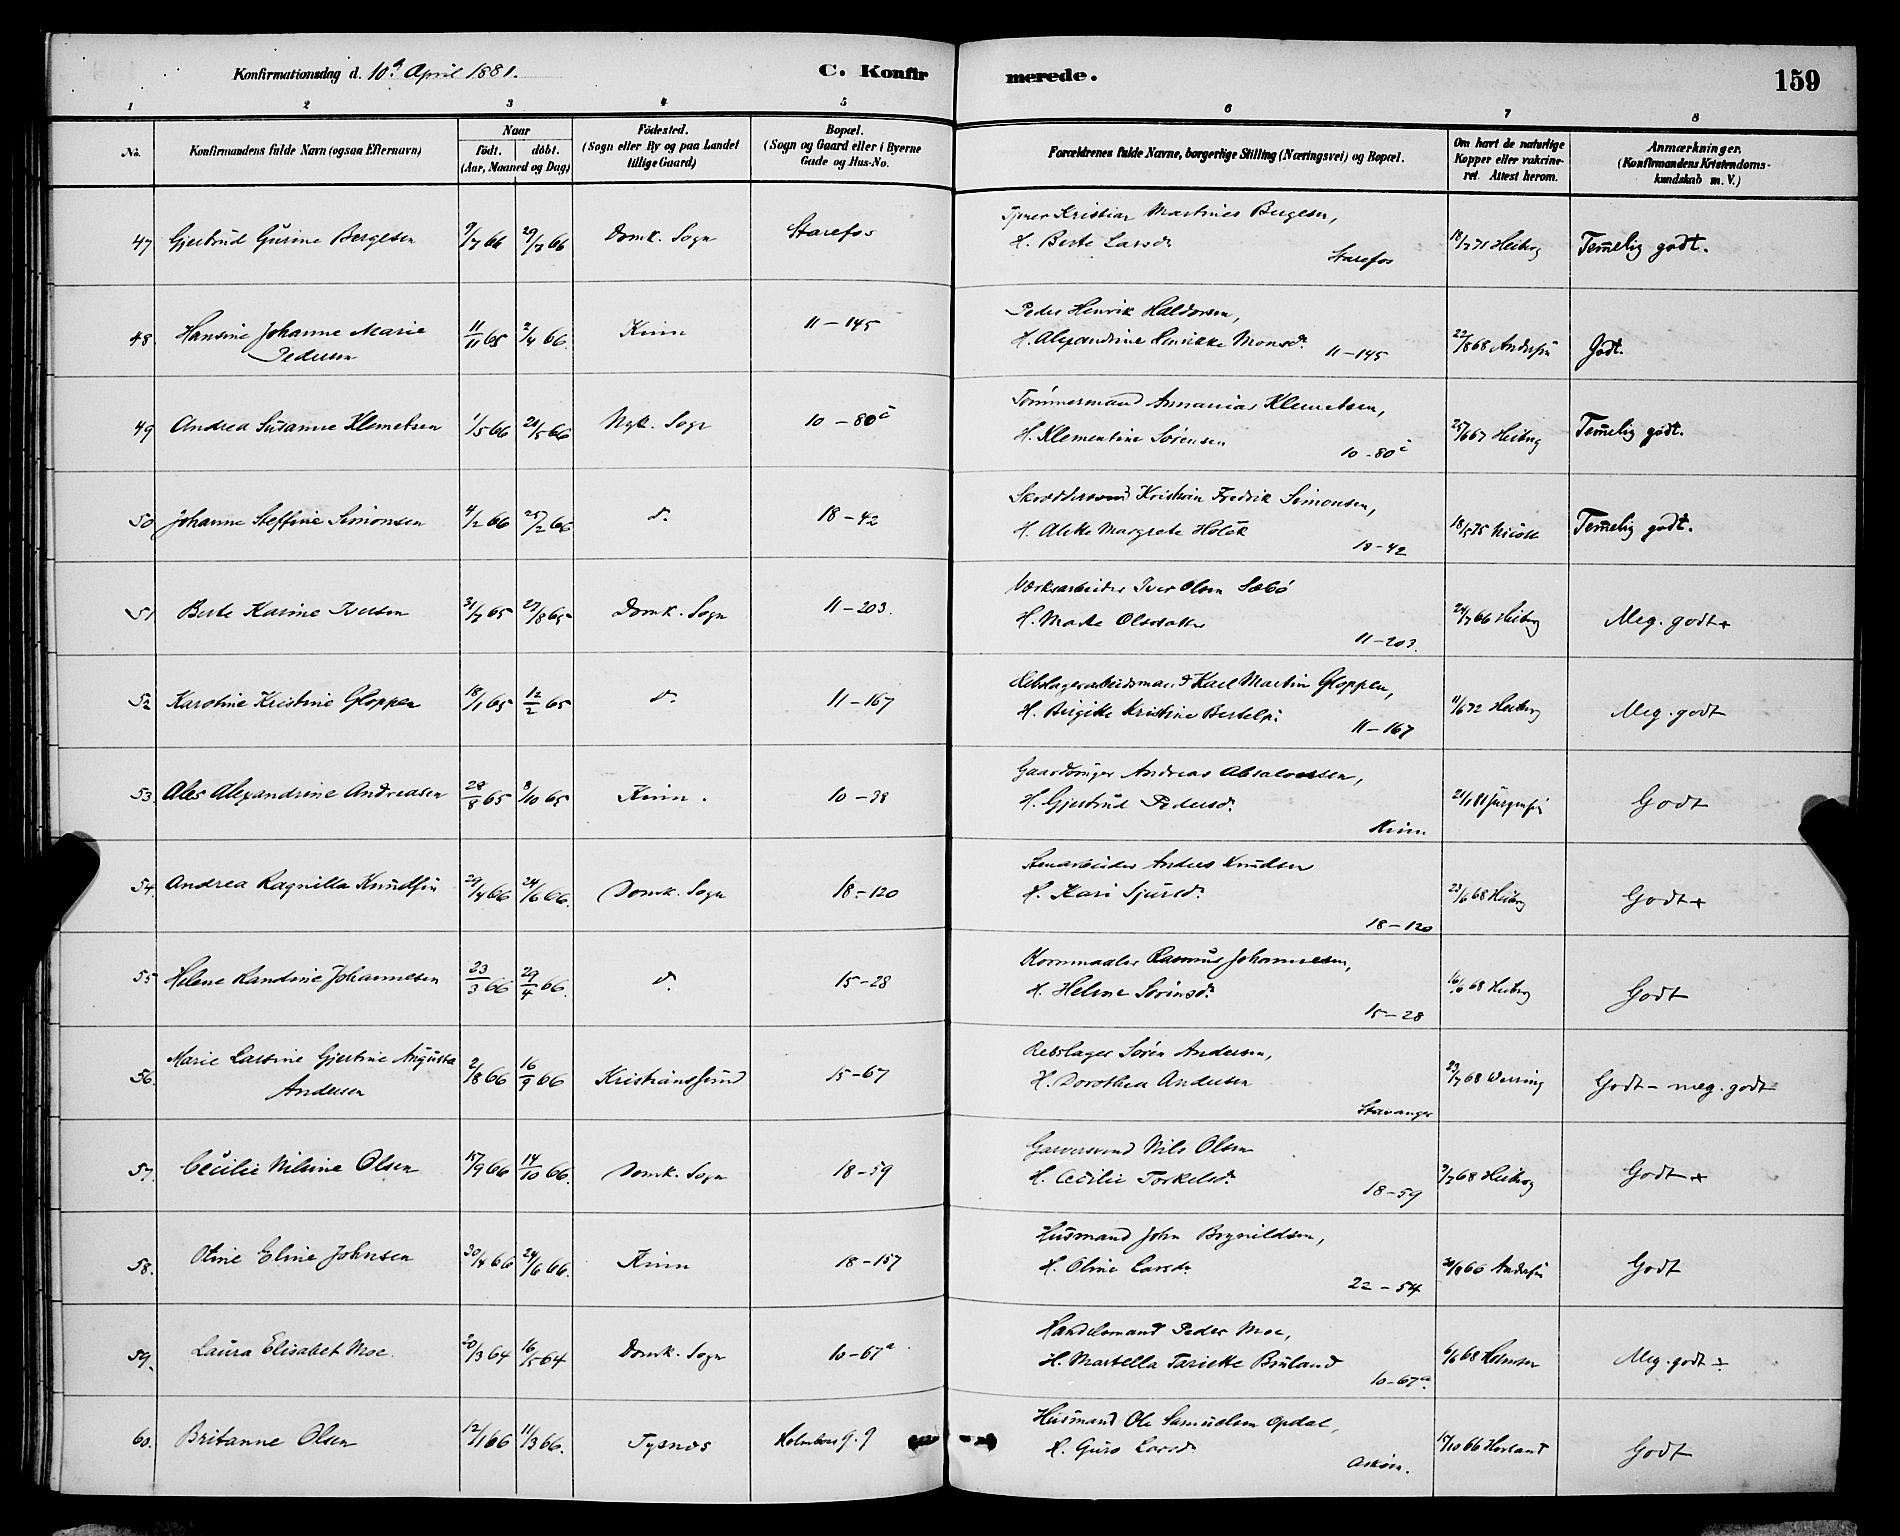 Konfirmationsdag d. 10de April 1881. C. Konfirmerede. 159
1 2 3 4 5 6 7 8
No. Konfirmandens fulde Navn (ogsaa Efternavn) Naar födt. döbt. (Aar, Maaned og Dag) Födested. (Sogn eller By og paa Landet tillige Gaard) Bopæl. (Sogn og Gaard eller i Byerne Gade og Hus-No. Forældrenes fulde Navne, borgerlige Stilling (Næringsvei) og Bopæl. Om havt de naturlige Kopper eller vakcineret. Attest herom. Anmærkninger. (Konfirmandens Kristendomskundskab m. V.)
47 Gjertrud Gurine Bergesen 9/7 66 29/7 66 Domk. Sogn Starefos Kristian Martines Bergesen,
H. Berte Larsdr. Starefos 18/7 71 Heiberg Temelig godt.
48. Hansine Johanne Marie Pedersen 11/11 65 2/4 66. Kinn 11-145 Peder Henrik Haldorsen,
H. Alexandrine Henrikke Monsdr. 11-145 22/8 68 Andersen Godt.
49 Andrea Susanne Klemetsen 1/5 66 21/5 66 Nyk. Sogn 10-80c Tömmermand Annanias Klemetsen,
H. Klementine Sörensen 10-80c 25/6 67 Heiberg Temelig godt.
50 Johanne Steffine Simonsen 4/2 66 25/2 66 do. 18-42 Skræddersvend Kristian Fredrik Simonsen,
H. Aleke Margrete Holck 18-42 18/5 75 Nicoll Temelig godt.
51 Berte Karine Iversen 31/7 65 27/8 65 Domk. Sogn 11-203. Værksarbeider Iver Olsen Sæbö
H. Marte Olsdatter 11-203. 24/7 66 Heiberg Meg. godt+
52 Karoline Kristine Gloppen 18/1 65 12/2 65 do. 11-167 Rebslagerarbeidsmand Karl Martin Gloppen,
H. Birgitte Kristine Bertels. 11-167 11/6 72 Heiberg Meg. godt
53. Ales Alexandrine Andreasen 28/8 65 8/10 65 Kinn. 10-38 Gaardbruger Andreas Absalonsen,
H. Gjertrud Pedersdr. Kinn 21/1 81 Jürgensen Godt
54. Andrea Ragnilla Knudsen 29/4 66 24/6 66. Domk. Sogn 18-120 Stenarbeider Anders Knudsen
H. Kari Sjursdr. 18-120 23/6 68 Heiberg Godt+
55 Helene Randine Johannesen 23/3 66 29/4 66. do. 15-28 Kornmaaler Rasmus Johannesen,
H. Helene Sörensdr. 15-28 16/6 68 Heiberg Godt
56. Marie Larsine Gjertine Augusta Andersen 2/8 66 16/9 66 Kristianssund 15-67 Rebslager Sören Andersen,
H. Dorothea Andersen Stavanger 23/7 68 Werring Godt-meg. godt
57. Cecilie Nilsine Olsen 15/9 66 14/10 66. Domk. Sogn 18-59 Garversvend Nils Olsen
H. Cecilie Torkelsdr. 18-59 3/7 68 Heiberg Godt+
58. Oline Eline Johnsen 30/4 66 24/6 66. Kinn 18-157 Husmand John Brynildsen,
H. Oline Larsdr. 22-54 30/8 66 Andersen Godt
59. Laura Elisabet Moe 20/3 64 16/5 64 Domk. Sogn 10-67a Handelsmand Peder Moe,
H. Martella Tarickke Bruland 10-67a. 6/6 68 Holmsen Meg. godt÷
60. Britanne Olsen 12/1 66 11/3 66. Tysnæs Holmbers g. 9 Husmand Ole Samuelsen Opdal,
H. Guro Larsdr. Asköen. 15/10 66 Horland Godt